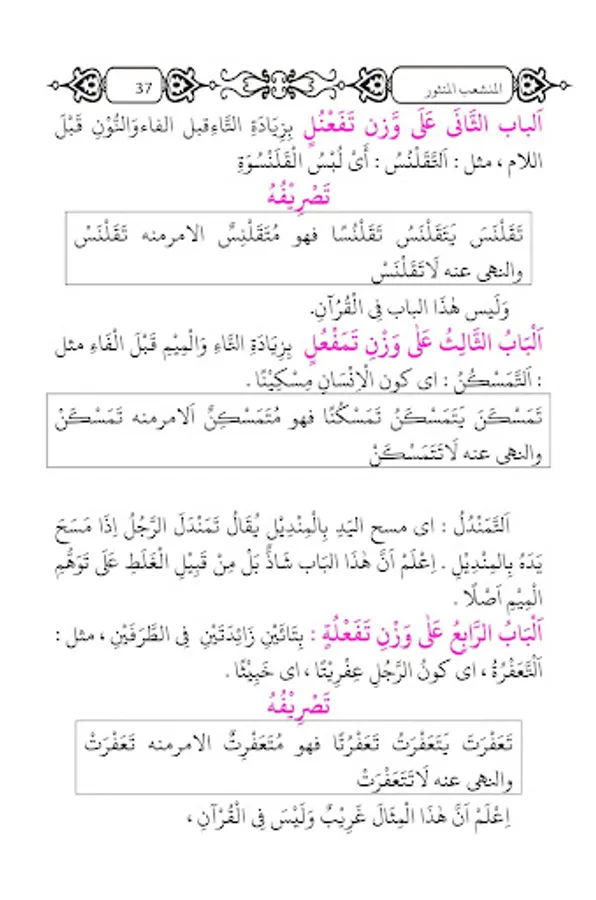 المنشعب المنثور
37
اَلباب الثَّانَى عَلَى وَّزْنِ تَفَعْنُلٍ بِزِيَادَةِ التَّاءِقبل الفاءوَالنُّوْنِ قَبْلَ
اللام ، مثل : اَلتَّقَلْنُسُ : أَىْ لُبْسُ الْقَلَنْسُوَةِ
تَصْرِيْفُهُ
تَقَلْنَسَ يَتَقَلْنَسُ تَقَلْنُسًا فهو مُتَقَلْنِسٌ الامرمنه تَقَلْنَسْ
والنهى عنه لَاتَقَلْنَسْ
وَلَيس هٰذَا الباب فِى الْقُرْآنِ.
اَلْبَابُ الثَّالِثُ عَلٰى وَزْنِ تَمَفْعُلٍ بِزِيَادَةِ التَّاءِ وَالْمِيْمِ قَبْلَ الْفَاءِ مثل
: اَلتَّمَسْكُنُ : اى كون الْاِنْسَانِ مِسْكِيْنًا .
تَمَسْكَنَ يَتَمَسْكَنُ تَمَسْكُنًا فهو مُتَمَسْكِنٌ اَلامرمنه تَمَسْكَنْ
والنهى عنه لَاتَتَمَسْكَنْ
اَلتَّمَنْدُلُ : اى مسح اليَدِ بِالْمِنْدِيْلِ يُقَالُ تَمَنْدَلَ الرَّجُلُ اِذَا مَسَحَ
يَدَهُ بِالمِنْدِيْلِ . اِعْلَمْ اَنَّ هٰذَا البَابَ شَاذٌّ بَلْ مِنْ قَبِيْلِ الْغَلَطِ عَلَى تَوَهُّمِ
الْمِيْمِ اَصْلًا .
اَلْبَابُ الرَّابِعُ عَلٰى وَزْنِ تَفَعْلُةٍ : بِتَائَيْنِ زَائِدَتَيْنِ فِى الطَّرَفَيْنِ ، مثل :
اَلتَّعَفْرُةُ ، اى كونُ الرَّجُلِ عِفْرِيْتًا ، اى خَبِيْثًا .
تَصْرِيْفُهُ
تَعَفْرَتَ يَتَعَفْرَتُ تَعَفْرُتًا فهو مُتَعَفْرِتٌ الامرمنه تَعَفْرَتْ
والنهى عنه لَاتَتَعَفْرَتْ
اِعْلَمْ اَنَّ هٰذَا الْمِثَالَ غَرِيْبٌ وَلَيْسَ فِى الْقُرْآنِ ،